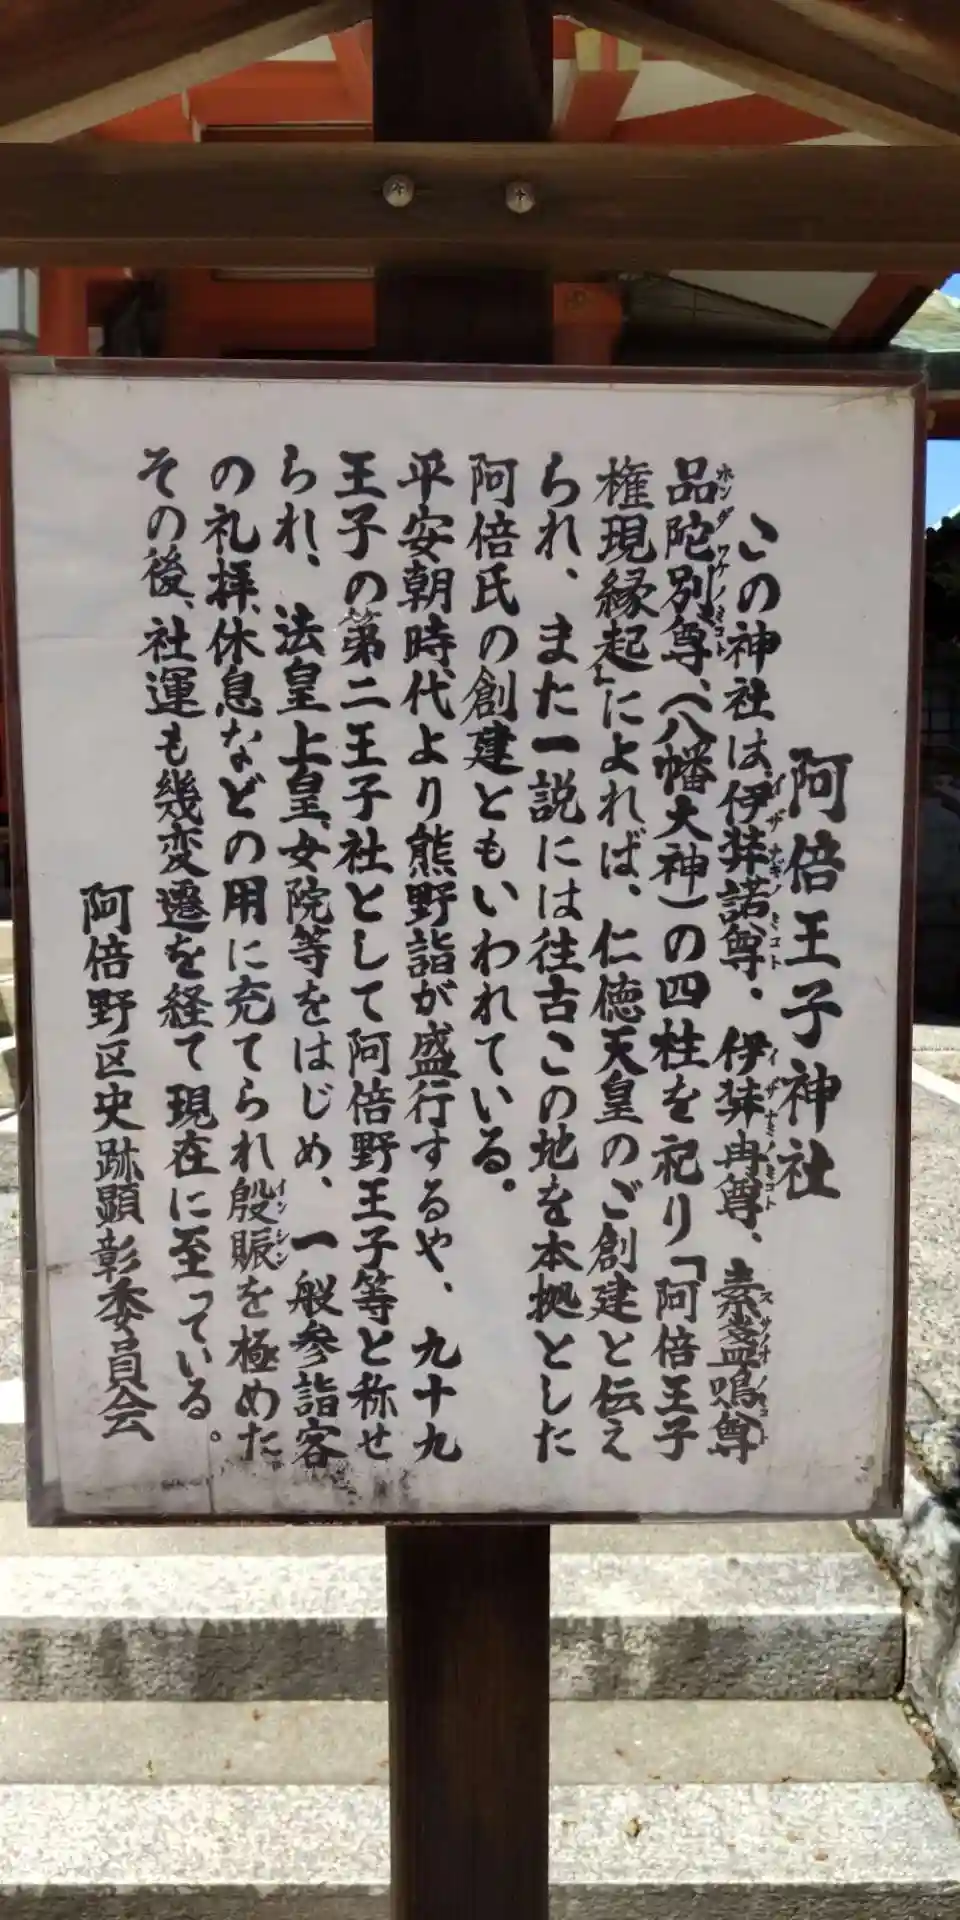 阿倍王子神社
この神社は、伊弉諾尊・伊弉冉尊、素盞嗚尊
品陀別尊、(八幡大神)の四柱を祀り「阿倍王子
権現縁起」によれば、仁徳天皇のご創建と伝え
られ、また一説には往古この地を本拠とした
阿倍氏の創建ともいわれている。
平安朝時代より熊野詣が盛行するや、九十九
王子の第二王子社として阿倍野王子等と称せ
られ、法皇上皇、女院等をはじめ、一般参詣客
の礼拝、休息などの用に充てられ殷賑を極めた
その後、社運も幾変遷を経て現在に至っている。
阿倍野区史跡顕彰委員会